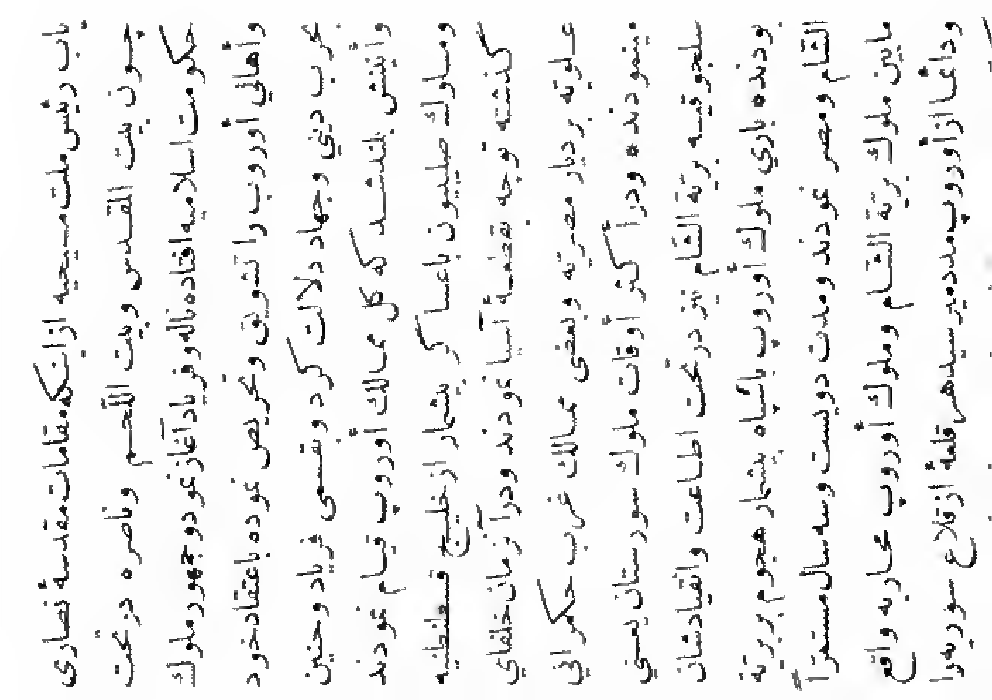 باب رئیس ملت مسیحیه از انکه مقامات مقدسهٔ نصاری
چون بیت المقدس وبیت اللحم وناصره در تحت
حکومت اسلامیه افتاده ناله وفریاد آغاز نمود وجمهور ملوك
وأهالی أوروپ را تشویق وتحریص نموده باعتقاد خود
حرب دینی وجهاد دلالت کرد وبقسمی فریاد وحنین
وأنینش بلند شد که کل ممالك أوروپ قیام نمودند
وملوك صلیبیون باعساکر بیشمار از خلیج قسطنطنیه
گذشته توجه بقطعهٔ آسیا نمودند ودر آنزمان خلفای
علویه بر دیار مصریه وبعضی ممالك غرب حکمرانی
مینمودند * ودر أکثر أوقات ملوك سورستان یعنی
سلجوقیه بریة الشام نیز در تحت اطاعت وانقیادشان
بودند * باری ملوك أوروپ باسپاه بیشمار هجوم بر بریة
الشام ومصر نمودند ومدت دویست وسه سال مستمراً
مابین ملوك بریة الشام وملوك أوروپ محاربه واقع
ودائما از أوروپ مدد میرسید هر قلعهٔ از قلاع سوریه را